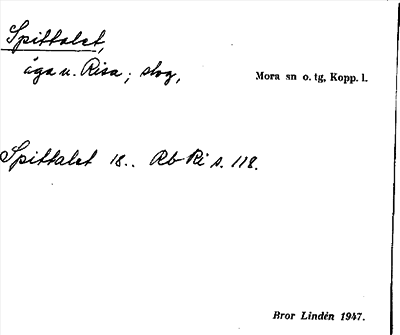 Spittalet,
äga u. Risa; skog,
Mora sn o. tg, Kopp. l.
Spittalet 18.. Rb Ri s. 118.
Bror Lindén 1947.